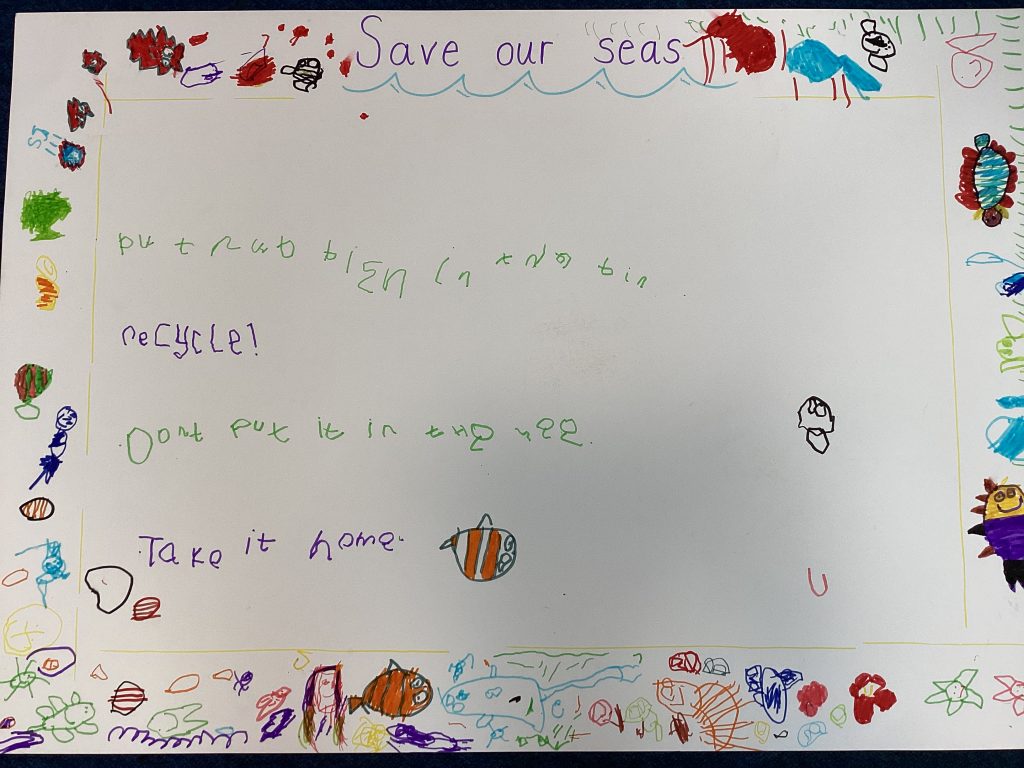 Save our seas
put in the bin
recycle!
Dont put it in the
Take it home.